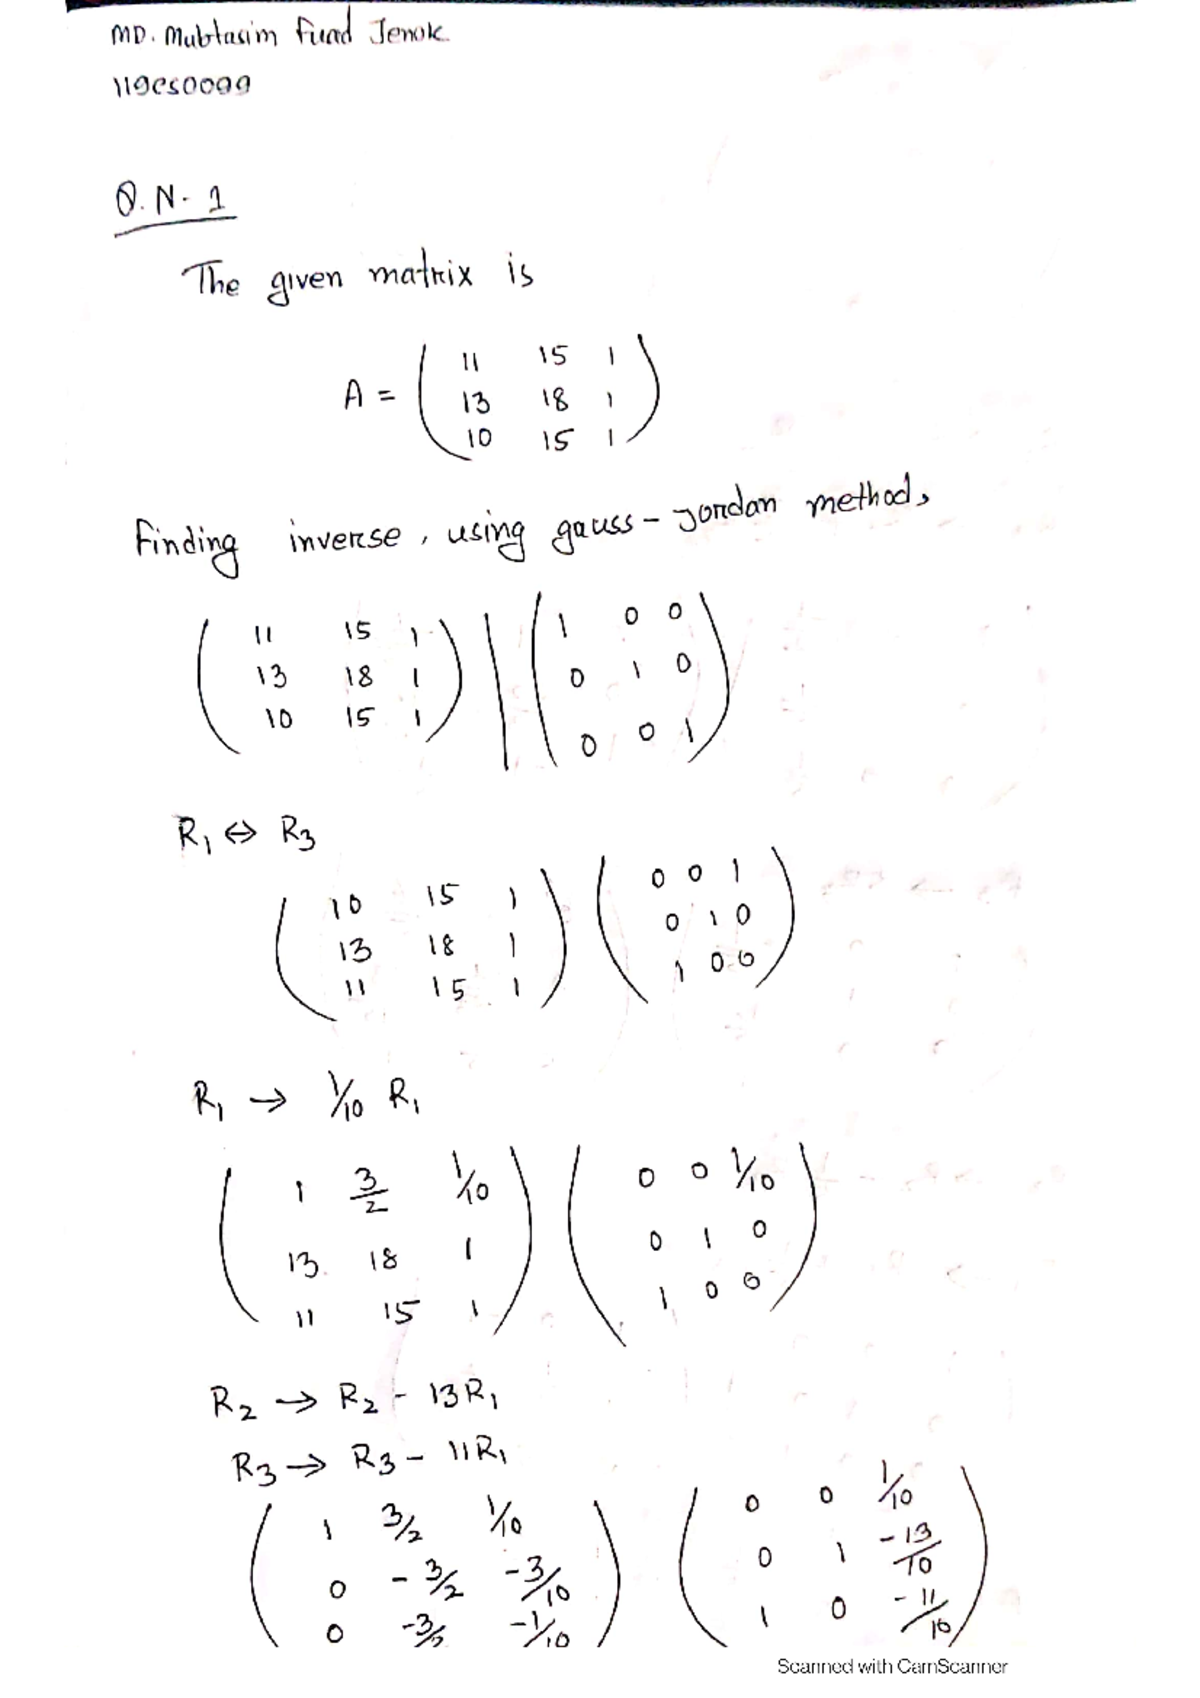 MD. Mubtasim Fuad Jenok
119CS0099
Q. N. 1
The given matrix is
A = ( 11 15 1
13 18 1
10 15 1 )
Finding inverse, using gauss-jordan method,
( 11 15 1 ) | ( 1 0 0
13 18 1 | 0 1 0
10 15 1 ) | 0 0 1 )
R1 ⇔ R3
( 10 15 1 ) ( 0 0 1
13 18 1 0 1 0
11 15 1 ) 1 0 0 )
R1 → 1/10 R1
( 1 3/2 1/10 ) ( 0 0 1/10
13 18 1 0 1 0
11 15 1 ) 1 0 0 )
R2 → R2 - 13R1
R3 → R3 - 11R1
( 1 3/2 1/10 ) ( 0 0 1/10
0 -3/2 -3/10 0 1 -13/10
0 -3/2 -1/10 ) 1 0 -11/10 )
Scanned with CamScanner